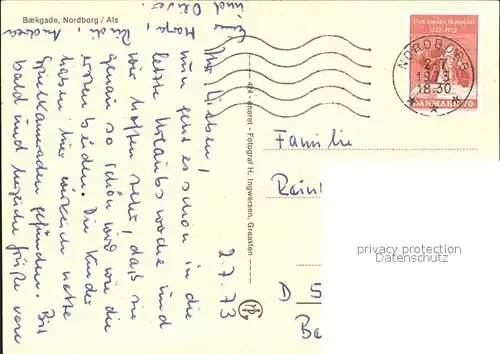 Bækgade, Nordborg / Als
2.7.73
Ihr Lieben!
nun geht es schon in die
letzte Urlaubswoche und
wir hoffen sehr, daß sie
genau so schön wird wie die
ersten beiden. Die Kinder
haben hier wirklich nette
Spielkameraden gefunden. Bis
bald und herzliche Grüße von
Eurer
und Dieter
Rudi, Andrea
eneret - Fotograf H. Ingwersen, Graasten
Den danske Skueplads
1722-1972
DANMARK 70
NORDBORG
2.7.
1973
18.30
Familie
D
privacy protection
Datenschutz